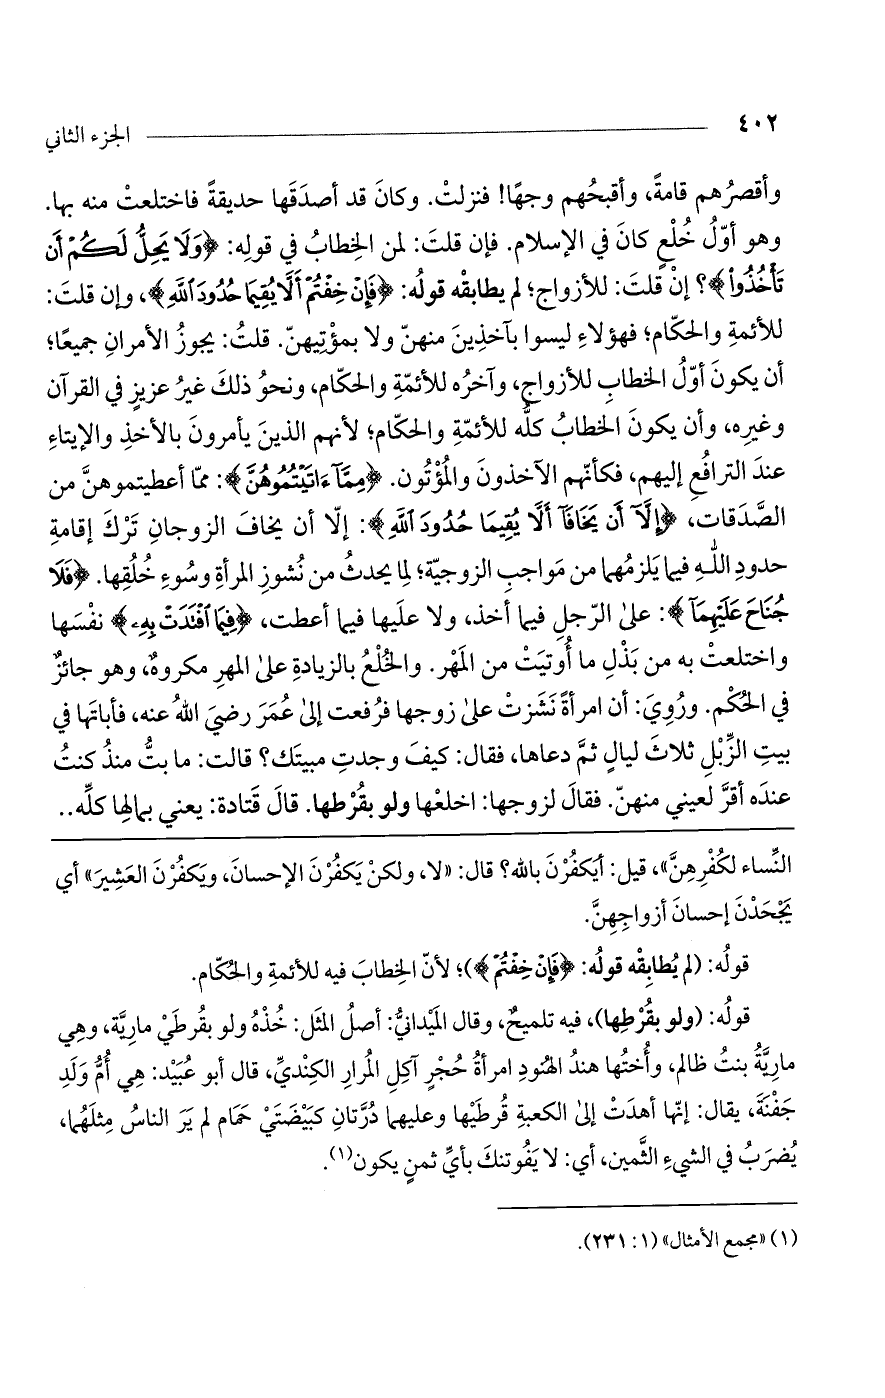 ٤٠٢ الجزء الثاني
وأقصرُهم قامةً، وأقبحُهم وجهًا! فنزلتْ. وكانَ قد أصدَقَها حديقةً فاختلعتْ منه بها.
وهو أوّلُ خُلْعٍ كانَ في الإسلام. فإن قلتَ: لمن الخِطابُ في قولِه: ﴿وَلَا يَحِلُّ لَكُمْ أَن
تَأْخُذُواْ﴾؟ إنْ قلتَ: للأزواج؛ لم يطابقْه قولُه: ﴿فَإِنْ خِفْتُمْ أَلَّا يُقِيمَا حُدُودَ ٱللَّهِ﴾، وإن قلتَ:
للأئمةِ والحكّام؛ فهؤلاءِ ليسوا بآخذِينَ منهنّ ولا بمؤْتِيهنّ. قلتُ: يجوزُ الأمرانِ جميعًا؛
أن يكونَ أوّلُ الخطابِ للأزواج، وآخرُه للأئمّةِ والحكّام، ونحوُ ذلكَ غيرُ عزيزٍ في القرآن
وغيرِه، وأن يكونَ الخطابُ كلُّه للأئمّةِ والحكّام؛ لأنهم الذينَ يأمرونَ بالأخذِ والإيتاءِ
عندَ الترافُعِ إليهم، فكأنّهم الآخذونَ والمُؤْتُون. ﴿مِمَّآ ءَاتَيْتُمُوهُنَّ﴾: ممّا أعطيتموهنَّ من
الصَّدَقات، ﴿إِلَّآ أَن يَخَافَآ أَلَّا يُقِيمَا حُدُودَ ٱللَّهِ﴾: إلّا أن يخافَ الزوجانِ تَرْكَ إقامةِ
حدودِ اللهِ فيما يَلزمُهما من مَواجبِ الزوجيّة؛ لِما يحدثُ من نُشوزِ المرأةِ وسُوءِ خُلُقِها. ﴿فَلَا
جُنَاحَ عَلَيْهِمَآ﴾: على الرّجلِ فيما أخذ، ولا علَيها فيما أعطت، ﴿فِيمَا ٱفْتَدَتْ بِهِۦ﴾ نفْسَها
واختلعتْ به من بَذْلِ ما أُوتيَتْ من المَهْر. والخُلْعُ بالزيادةِ على المهرِ مكروهٌ، وهو جائزٌ
في الحُكْم. ورُوِيَ: أن امرأةً نَشَزتْ على زوجها فرُفعت إلى عُمَرَ رضيَ اللهُ عنه، فأباتَها في
بيتِ الزِّبْلِ ثلاثَ ليالٍ ثمَّ دعاها، فقال: كيفَ وجدتِ مبيتَك؟ قالت: ما بتُّ منذُ كنتُ
عندَه أقرَّ لعيني منهنّ. فقالَ لزوجها: اخلعْها ولو بقُرْطها. قالَ قَتادة: يعني بمالِها كلِّه..
النِّساء لكُفْرِهِنَّ»، قيل: أيَكفُرْنَ بالله؟ قال: «لا، ولكنْ يَكفُرْنَ الإحسانَ، ويَكفُرْنَ العَشِيرَ» أي
يَجْحَدْنَ إحسانَ أزواجِهِنَّ.
قولُه: (لم يُطابِقْه قولُه: ﴿فَإِنْ خِفْتُمْ﴾)؛ لأنّ الخِطابَ فيه للأئمةِ والحُكّام.
قولُه: (ولو بقُرْطِها)، فيه تلميحٌ، وقال المَيْدانيُّ: أصلُ المثَل: خُذْهُ ولو بقُرطَيْ مارِيَّة، وهِي
مارِيَّةُ بنتُ ظالم، وأُختُها هندُ الهُنودِ امرأةُ حُجْرٍ آكِلِ المُرارِ الكِنْديِّ، قال أبو عُبَيْد: هِي أُمُّ وَلَدِ
جَفْنَةَ، يقال: إنّها أهدَتْ إلى الكعبةِ قُرطَيْها وعليهما دُرَّتانِ كبَيْضَتَيْ حَمَام لم يَرَ الناسُ مِثلَهُما،
يُضرَبُ في الشيءِ الثَّمين، أي: لا يَفُوتنكَ بأيِّ ثمنٍ يكون(١).
(١) «مجمع الأمثال» (١: ٢٣١).